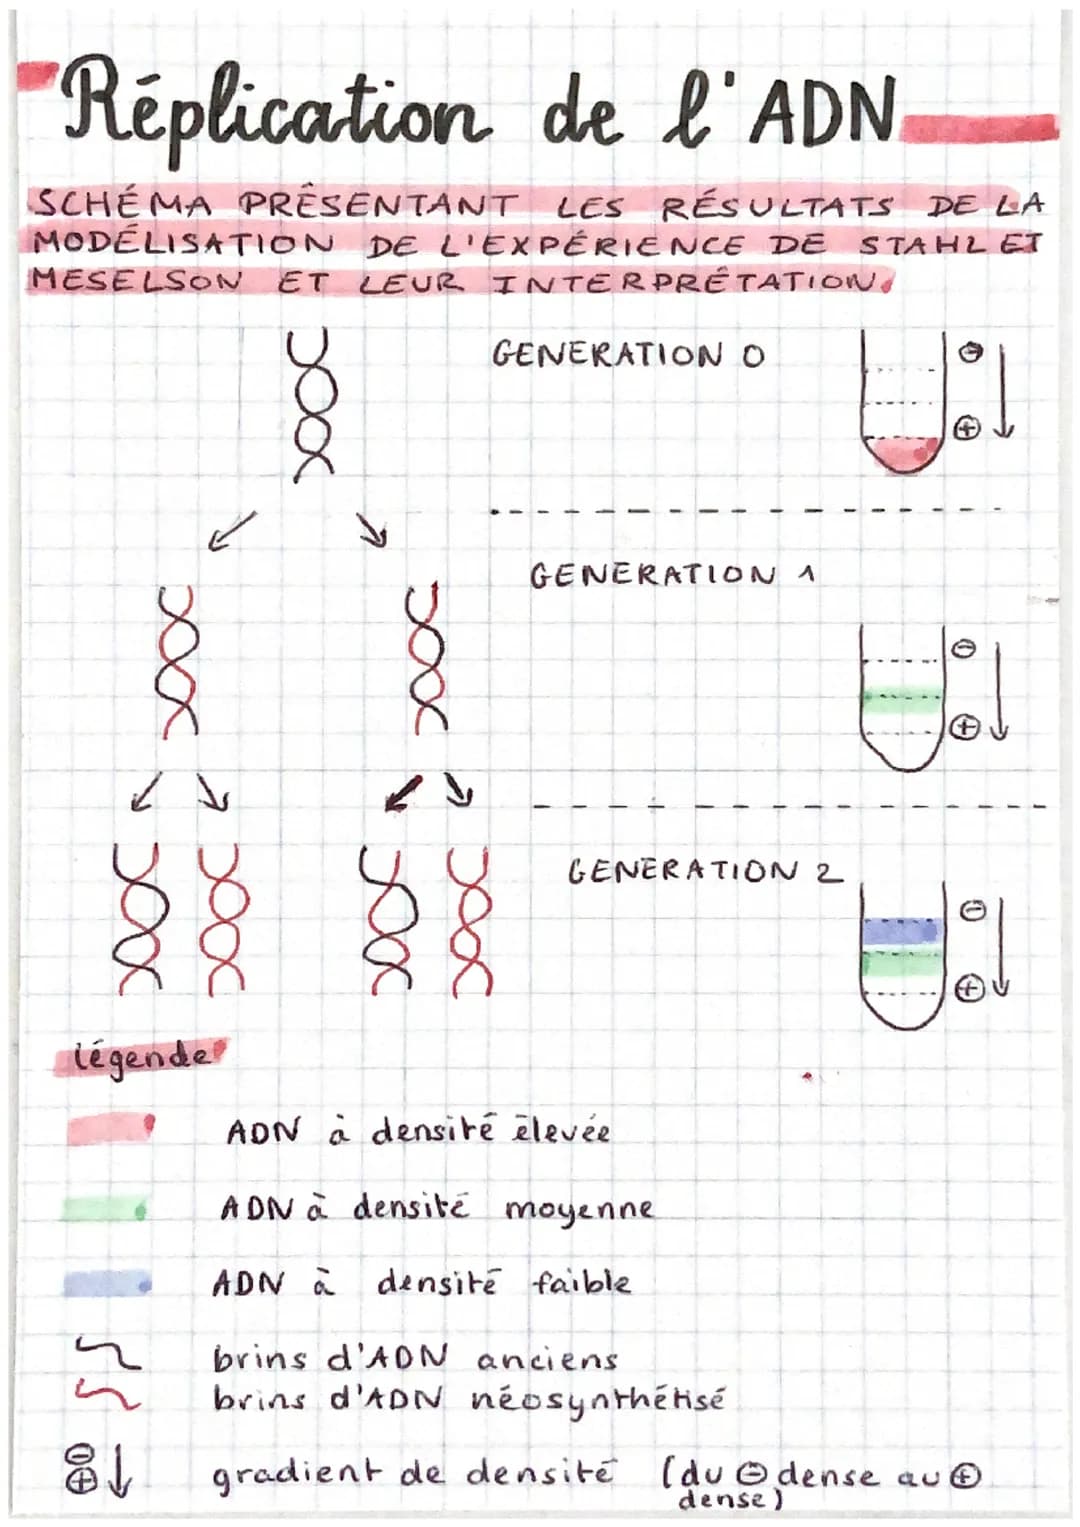 Réplication de l'ADN
SCHÉMA PRÉSENTANT LES RÉSULTATS DE LA
MODÉLISATION DE L'EXPÉRIENCE DE STAHL ET
MESELSON ET LEUR INTERPRÉTATION.
GENERATION 0
⊖
⊕
GENERATION 1
⊖
⊕
GENERATION 2
⊖
⊕
légende
ADN à densité élevée
ADN à densité moyenne
ADN à densité faible
brins d'ADN anciens
brins d'ADN néosynthétisé
⊖
⊕ gradient de densité (du ⊖ dense au ⊕
dense)